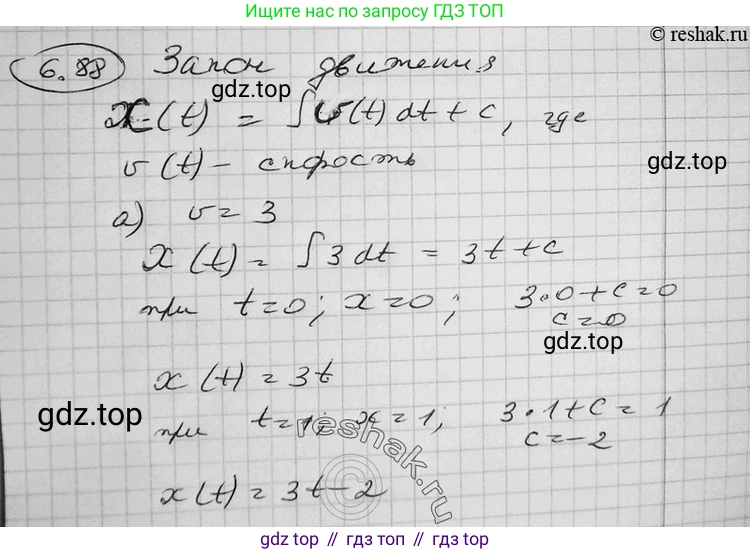 Ищите нас по запросу ГДЗ ТОП
© reshak.ru
6.88 Закон движения
gdz.top
x(t) = ∫v(t) dt + c, где
v(t) - скорость
gdz.top
а) v = 3
x(t) = ∫3 dt = 3t + c
при t=0; x=0; 3·0+c=0
c=0
gdz.top
x(t) = 3t
gdz.top
при t=1; x=1; 3·1+c=1
c=-2
reshak.ru
x(t) = 3t-2
gdz.top // гдз.топ // gdz.top